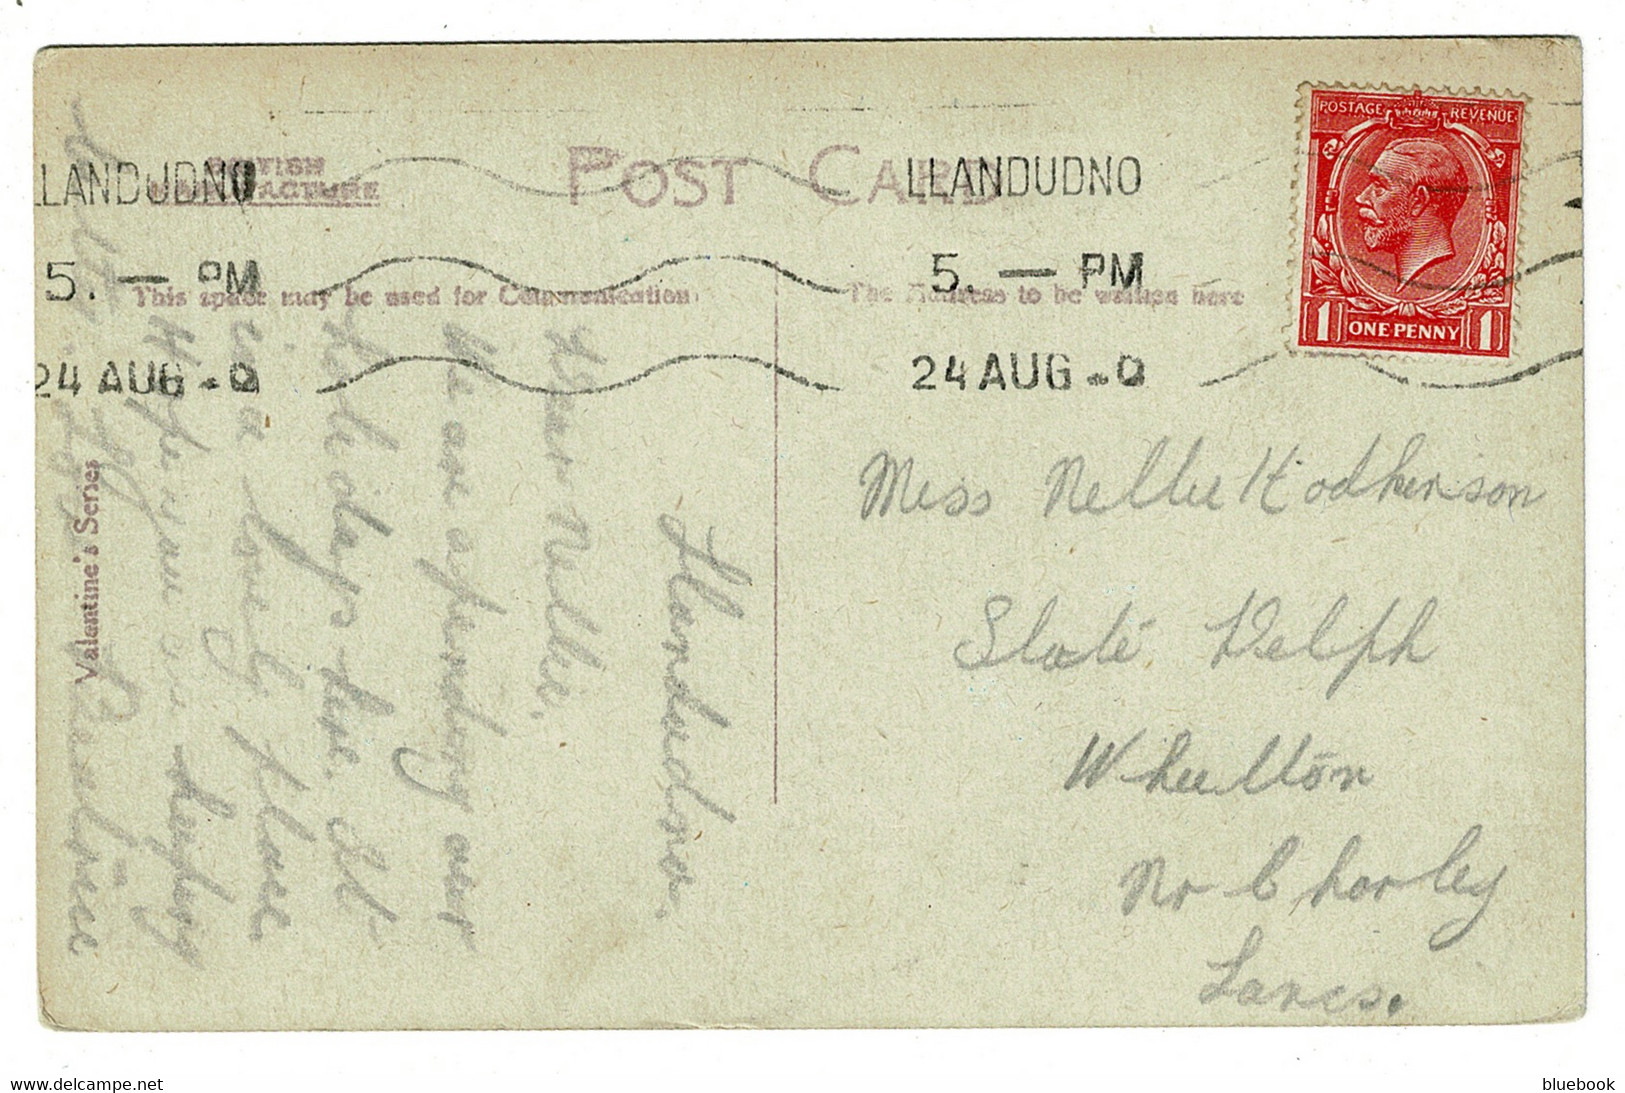 BRITISH
MANUFACTURE
POST CARD
LLANDUDNO
5. — PM
24 AUG
LLANDUDNO
5. — PM
24 AUG
POSTAGE REVENUE
1 ONE PENNY 1
This space may be used for Communication
The Address to be written here
Valentine's Series
Llandudno.
Dear Nellie,
We are spending our
holidays here. It
is a lovely place
Hope you are keeping
Love
Miss Nellie Hodkinson
Slate Delph
Wheelton
Nr Chorley
Lancs.
delcampe.net
bluebook